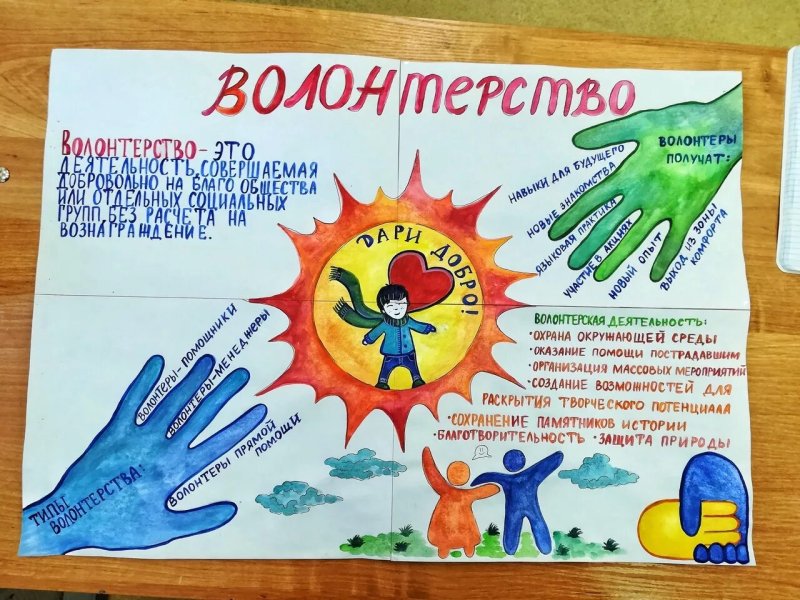 ВОЛОНТЕРСТВО
ВОЛОНТЕРСТВО - ЭТО
ДЕЯТЕЛЬНОСТЬ, СОВЕРШАЕМАЯ
ДОБРОВОЛЬНО НА БЛАГО ОБЩЕСТВА
ИЛИ ОТДЕЛЬНЫХ СОЦИАЛЬНЫХ
ГРУПП, БЕЗ РАСЧЕТА НА
ВОЗНАГРАЖДЕНИЕ.
ВОЛОНТЕРЫ
ПОЛУЧАТ:
НАВЫКИ ДЛЯ БУДУЩЕГО
НОВЫЕ ЗНАКОМСТВА
ЯЗЫКОВАЯ ПРАКТИКА
УЧАСТИЕ В АКЦИЯХ
НОВЫЙ ОПЫТ
ВЫХОД ИЗ ЗОНЫ
КОМФОРТА
ДАРИ ДОБРО!
ТИПЫ
ВОЛОНТЕРСТВА:
ВОЛОНТЕРЫ-ПОМОЩНИКИ
ВОЛОНТЕРЫ-МЕНЕДЖЕРЫ
ВОЛОНТЕРЫ ПРЯМОЙ
ПОМОЩИ
ВОЛОНТЕРСКАЯ ДЕЯТЕЛЬНОСТЬ:
·ОХРАНА ОКРУЖАЮЩЕЙ СРЕДЫ
·ОКАЗАНИЕ ПОМОЩИ ПОСТРАДАВШИМ
·ОРГАНИЗАЦИЯ МАССОВЫХ МЕРОПРИЯТИЙ
·СОЗДАНИЕ ВОЗМОЖНОСТЕЙ ДЛЯ
РАСКРЫТИЯ ТВОРЧЕСКОГО ПОТЕНЦИАЛА
·СОХРАНЕНИЕ ПАМЯТНИКОВ ИСТОРИИ
·БЛАГОТВОРИТЕЛЬНОСТЬ ·ЗАЩИТА ПРИРОДЫ